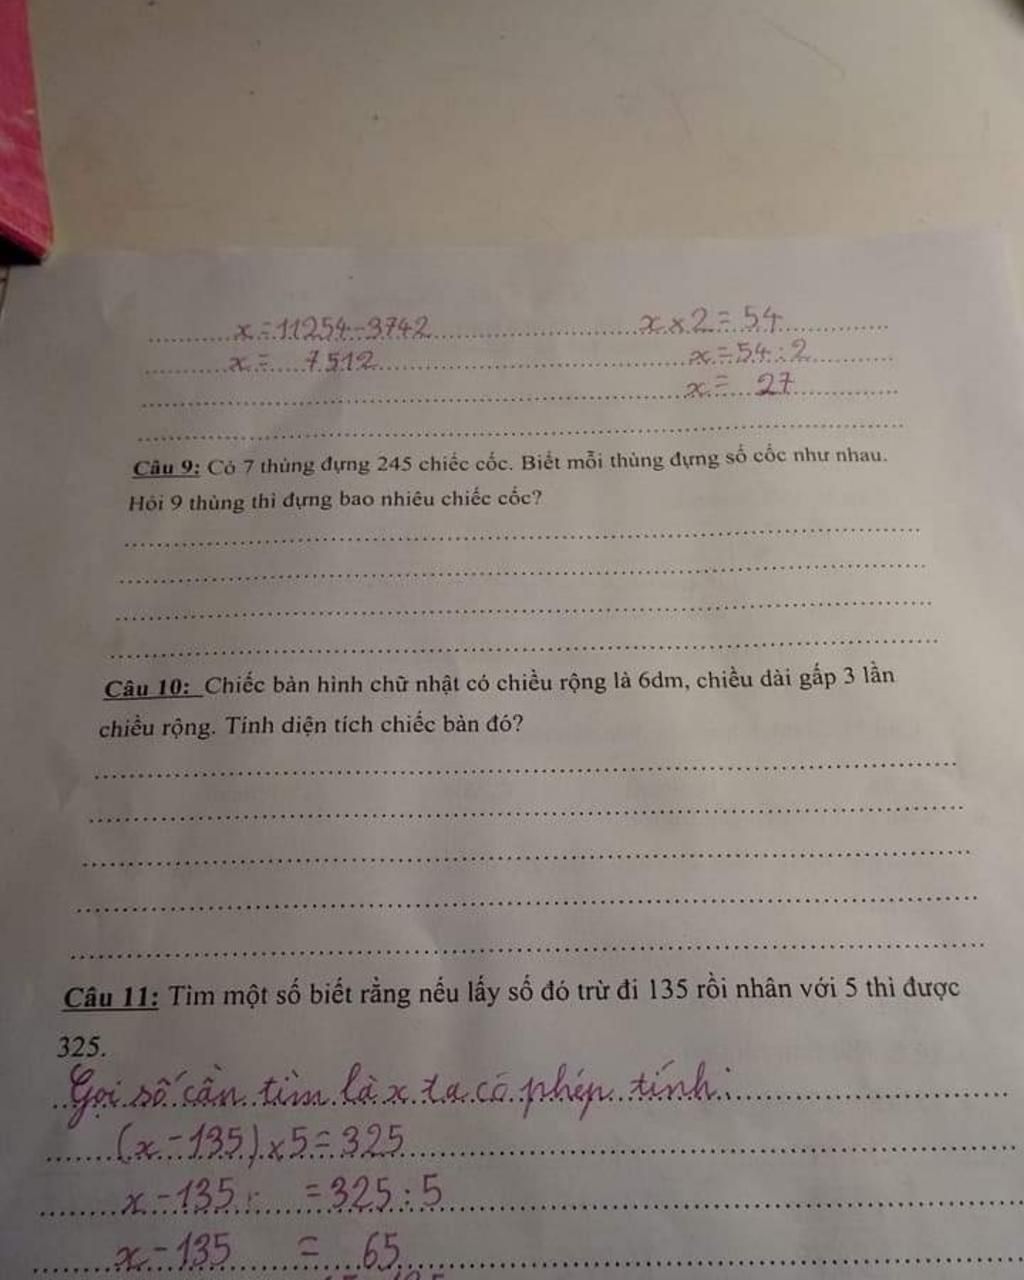 x = 11254 - 3742 x x 2 = 54
x = 7512 x = 54 : 2
x = 27
Câu 9: Có 7 thùng đựng 245 chiếc cốc. Biết mỗi thùng đựng số cốc như nhau.
Hỏi 9 thùng thì đựng bao nhiêu chiếc cốc?
Câu 10: Chiếc bàn hình chữ nhật có chiều rộng là 6dm, chiều dài gấp 3 lần
chiều rộng. Tính diện tích chiếc bàn đó?
Câu 11: Tìm một số biết rằng nếu lấy số đó trừ đi 135 rồi nhân với 5 thì được
325.
Gọi số cần tìm là x ta có phép tính:
(x - 135) x 5 = 325
x - 135 = 325 : 5
x - 135 = 65